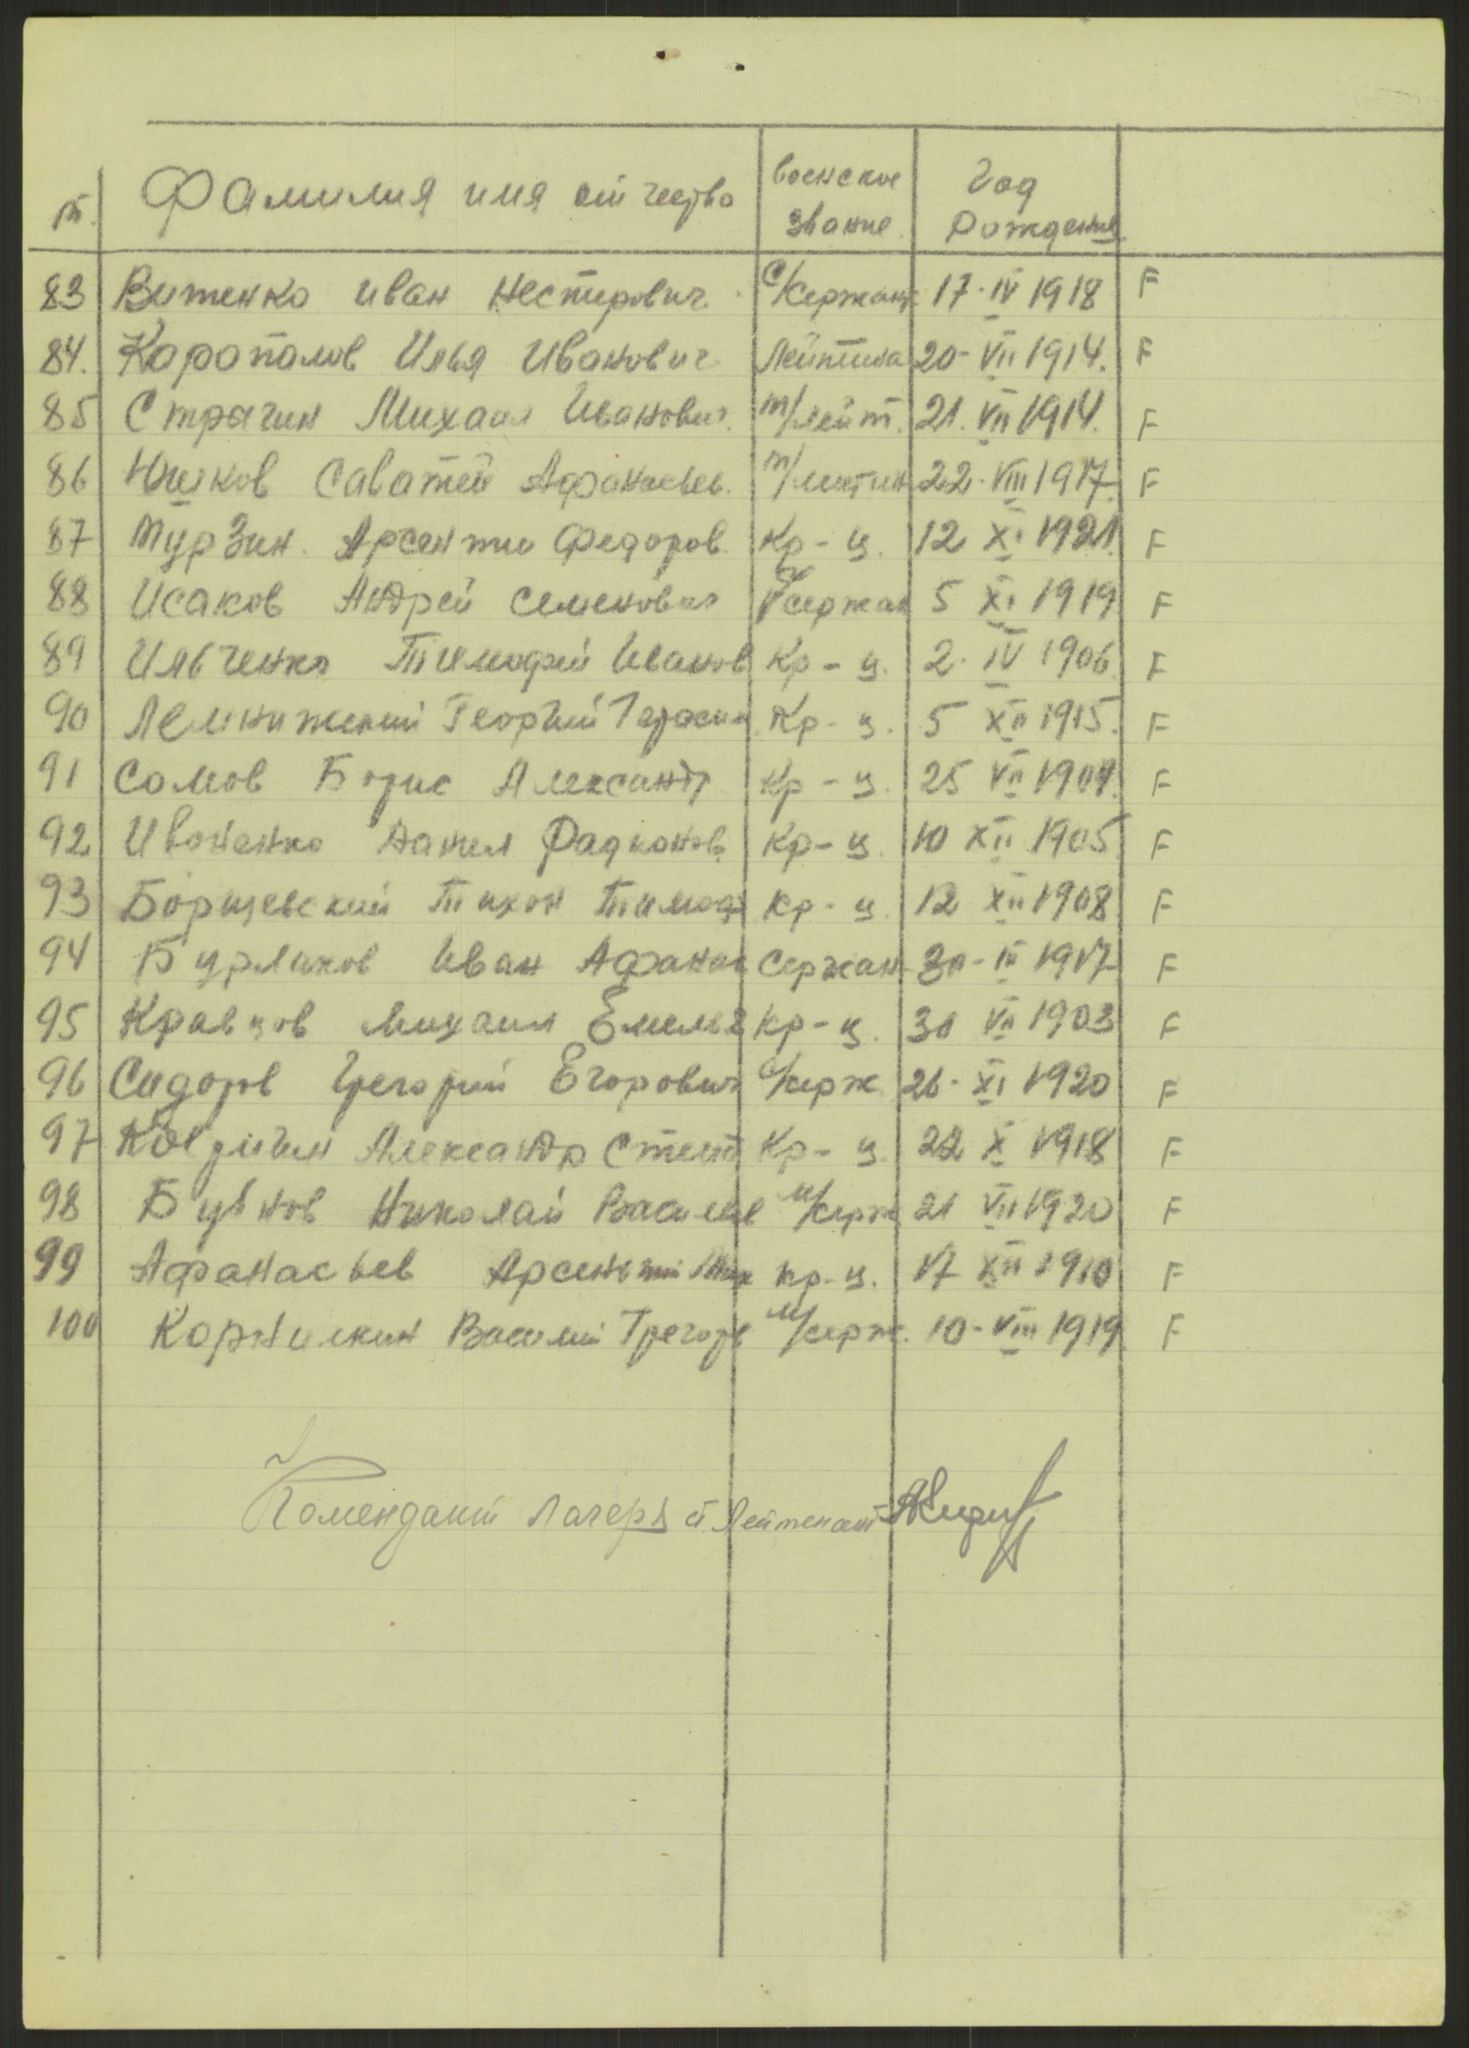 Фамилия имя отчество воинское звание Год Рождения
83 Витенко иван Нестирович с/Сержант 17-IV 1918 F
84. Каропалов Илья Иванович Лейтина 20-VII 1914. F
85 Страчин Михаил Иванович. т/лейт. 21. VII 1914. F
86 Саватей Афанасьев. 22-VIII 1917 F
87 Мурзин. Арсентии Федоров. Кр-ц. 12 XI 1921. F
88 Исаков Андрей Семенович сержан 5 XI 1919 F
89 Ильченко Тимофей Иванов Кр-ц. 2. IV 1906 F
90 Георгий Герасим Кр-ц. 5 XII 1915. F
91 Сомов Борис Александр Кр-ц. 25 VII F
92 Иваненко Данил Радионов Кр-ц. 10 XII 1905 F
93 Борщевский Тихон Тимоф кр-ц. 12 XII 1908 F
94 Бурликов Иван Афанас Сержан 1917 F
95 Кравцов Михаил Емилья кр-ц. VII 1903 F
96 Сидоров Грегорий Егорович с/серж 26-XI 1920 F
97 Александр Степ Кр-ц. 22 X 1918 F
98 Бубнов Николай Василев м/серж 21 VII 1920 F
99 Афанасьев Арсентий Мих кр-ц. 17 XII 1910 F
100 Корнилкин Василий Грегорв м/серж. 10-VIII 1919 F
Комендант Лагеря ст. Лейтенант